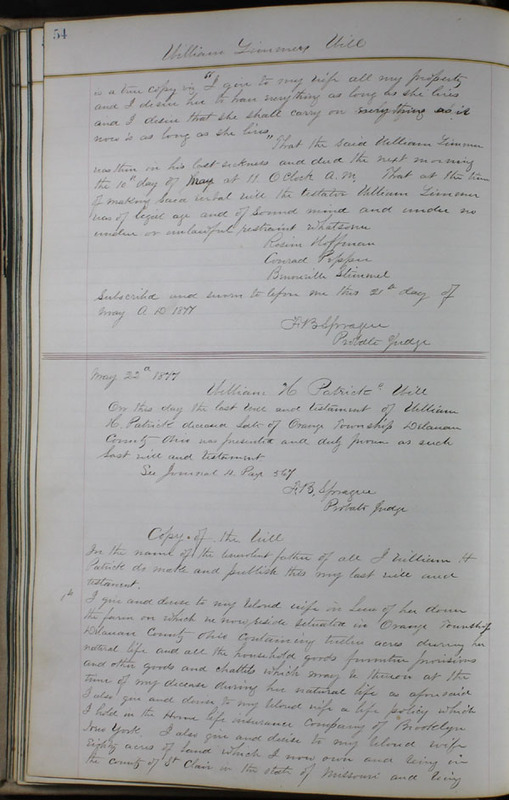 54
William Zimmers Will
is a true copy viz "I give to my wife all my property
and I desire her to have everything as long as she lives
and I desire that she shall carry on everything as it
now is as long as she lives" That the said William Zimmer
was then in his last sickness and died the next morning
the 10th day of May at 11 O Clock A.M. That at the time
of making said verbal will the testator William Zimmer
was of legal age and of sound mind and under no
undue or unlawful restraint whatsoever
Rosina Hoffman
Conrad
Stimmel
Subscribed and sworn to before me this 21st day of
May A D 1877
F.B. Sprague
Probate Judge
May 22d 1877
William H Patricks Will
On this day the last will and testament of William
H. Patrick deceased late of Orange Township Delaware
County Ohio was presented and duly proven as such
last will and testament
See Journal H. Page 567
F.B. Sprague
Probate Judge
Copy of the Will
In the name of the benevolent father of all I William H
Patrick do make and publish this my last will and
testament.
1st
I give and devise to my beloved wife in lieu of her dower
the farm on which we now reside situated in Orange Township
Delaware County Ohio containing twelve acres during her
natural life and all the household goods furniture provisions
and other goods and chattels which may be thereon at the
time of my decease during her natural life as aforesaid
I also give and devise to my beloved wife a life policy which
I hold in the Home life insurance Company of Brooklyn
New York. I also give and devise to my beloved wife
eighty acres of land which I now own and being in
the county of St Clair in the state of Missouri and being